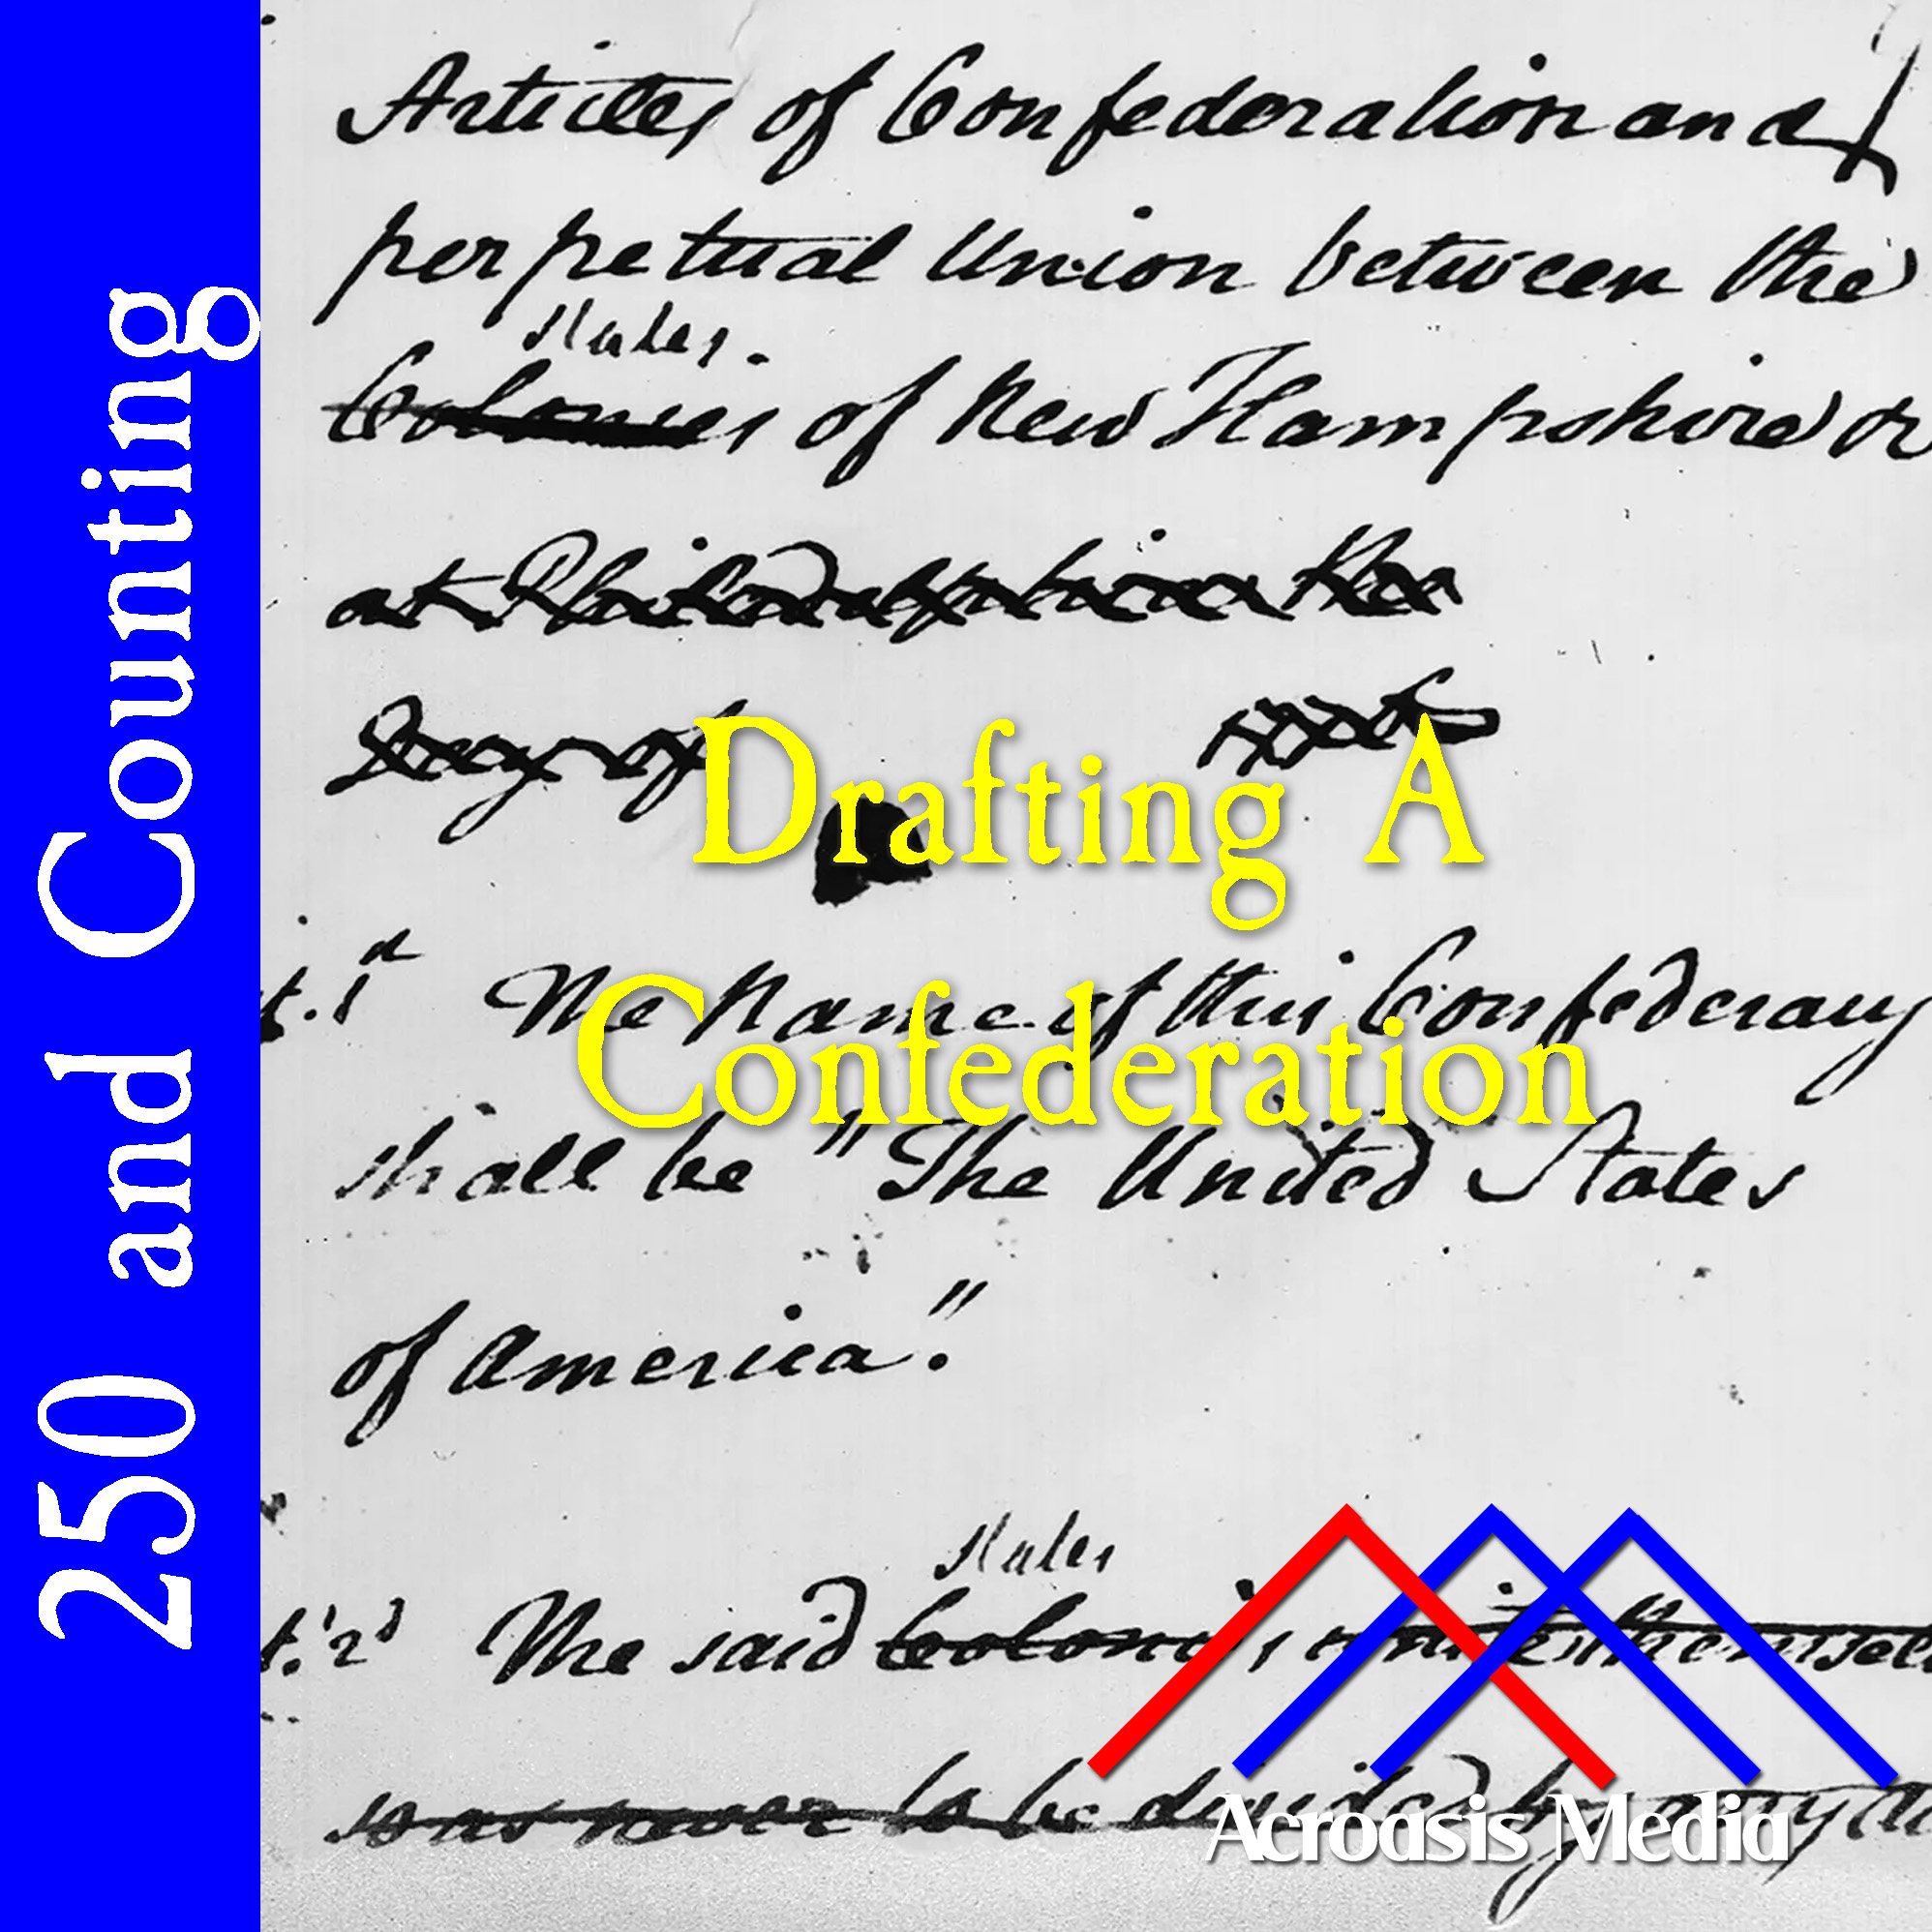 250 and Counting
Articles of Confederation and
perpetual Union between the
States.
Colonies of New Hampshire &
at Philadelphia the
Day of
Drafting A
t. 1st The Name of this Confederacy
Confederation
shall be "The United States
of America".
States
t. 2d The said Colonies unite themsel
so as never to be divided by any
Acroasis Media